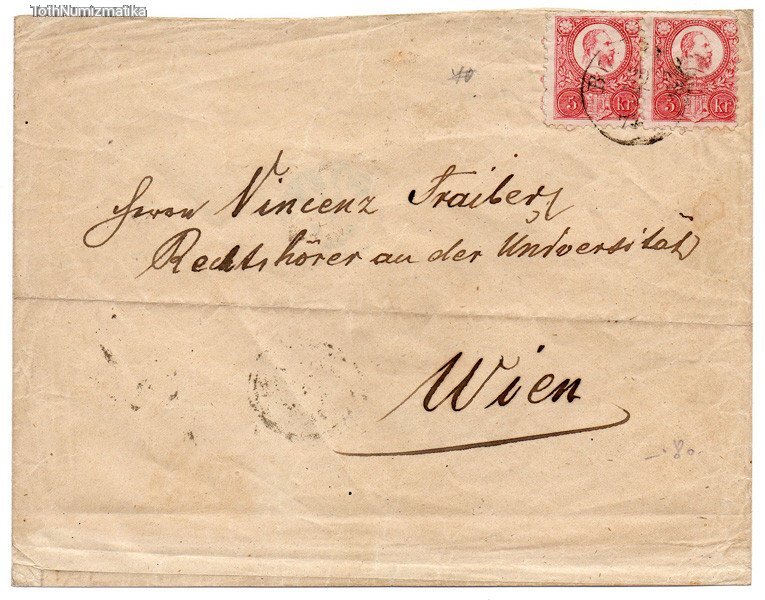 TóthNumizmatika
5 Kr 5 Kr
Herrn Vincenz Traiber
Rechtshörer an der Universität
Wien